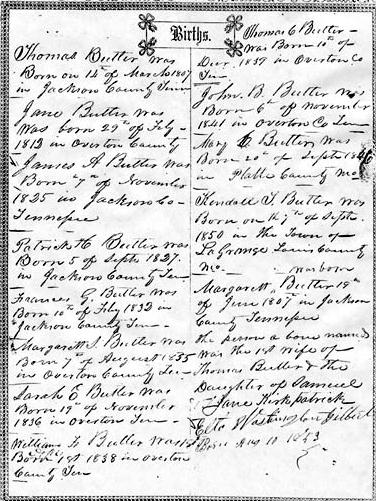 Births.
Thomas Butler was
Born on 14th of March 1807
in Jackson County Tenn
Jane Butler was
was born 29th of Feby
1813 in Overton County
James A Butler was
Born 7th of November
1825 in Jackson Co
Tennessee
Patrick H Butler was
Born 5 of Sept 1827.
in Jackson County Ten
Frances G. Butler was
Born 10th of Feby 1832 in
Jackson County Tenn
Margarett J. Butler was
Born 7th of August 1835
in Overton County Ten
Sarah E Butler was
Born 19th of November
1836 in Overton Tenn
William F Butler was
Born 1st 1838 in Overton
County Ten
Thomas C Butler
was Born 10th of
1839 in Overton Co
Ten
John B. Butler was
Born 6th of november
1841 in Overton Co Ten
Mary Butler was
Born 20th of Sept 1846
in Platte County Mo
Kendall J. Butler was
Born on 7th of Sept.
1850 in the Town of
LaGrange Lewis County
Mo. was born
Margarett Butler 19th
of June 1807 in Jackson
County Tennessee
the person a bove named
was the 1st wife of
Thomas Butler & the
Daughter of Samuel
Jane Kirkpatrick
Washington Gilbert
Born Aug 10 1843